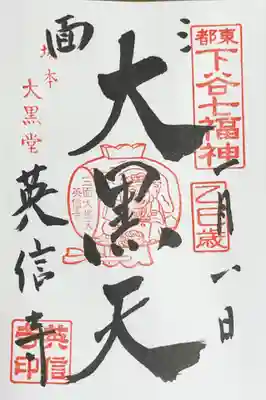 東都
下谷七福神
乙巳歳
一月八日
三面
大黒天
三面大黒天
英信寺
坂本
大黒堂
英信寺
英信寺印